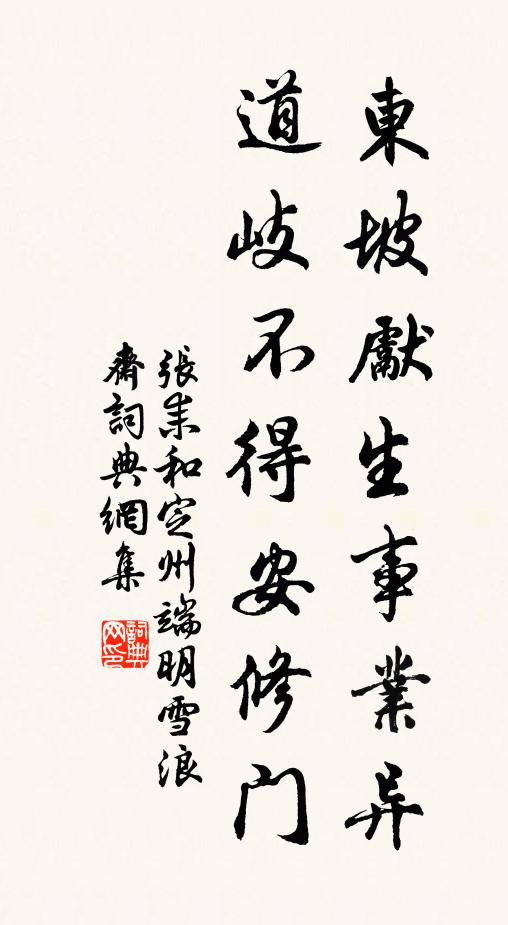 東坡獻生事業异
道岐不得安修門
張耒和定州端明雪浪
齋詞典網集
詞典网印